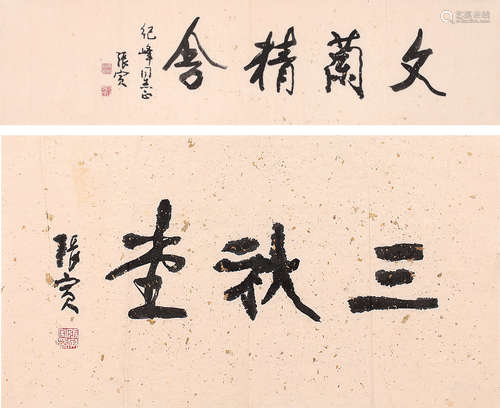 文蘭精舍
纪峰同志正
張寅
三秋堂
張寅